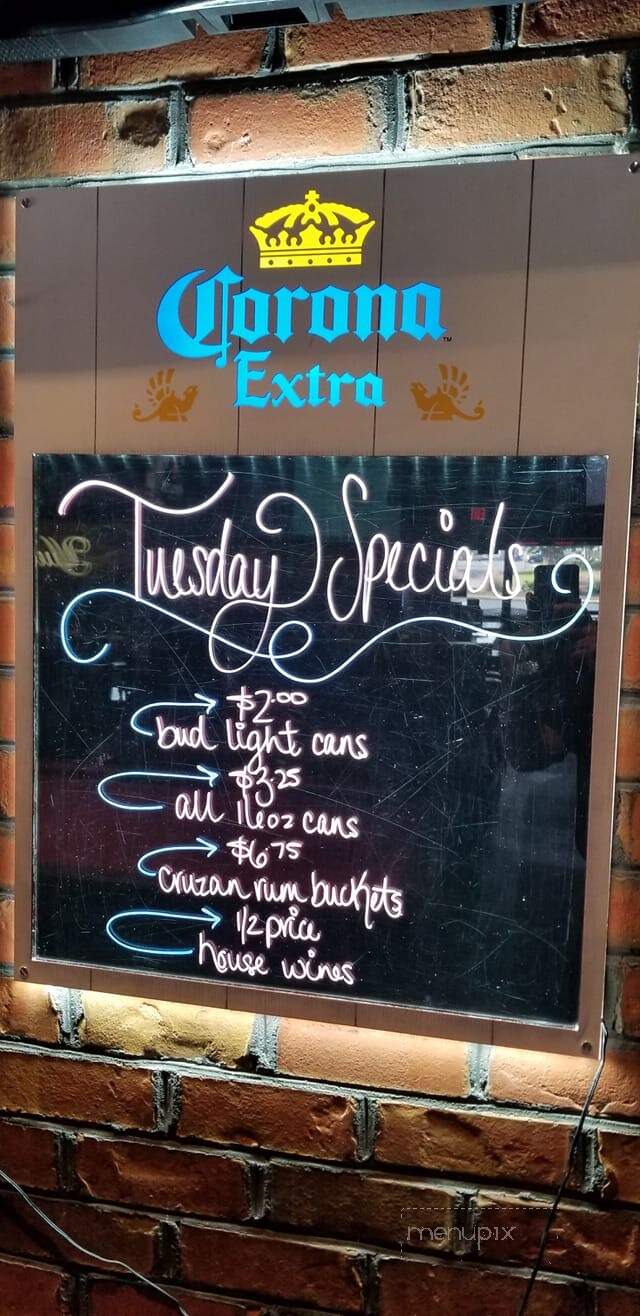 Corona
™
Extra
Tuesday Specials
$2.00
bud light cans
$3.25
all 16oz cans
$6.75
Cruzan rum buckets
1/2 price
house wines
menupix